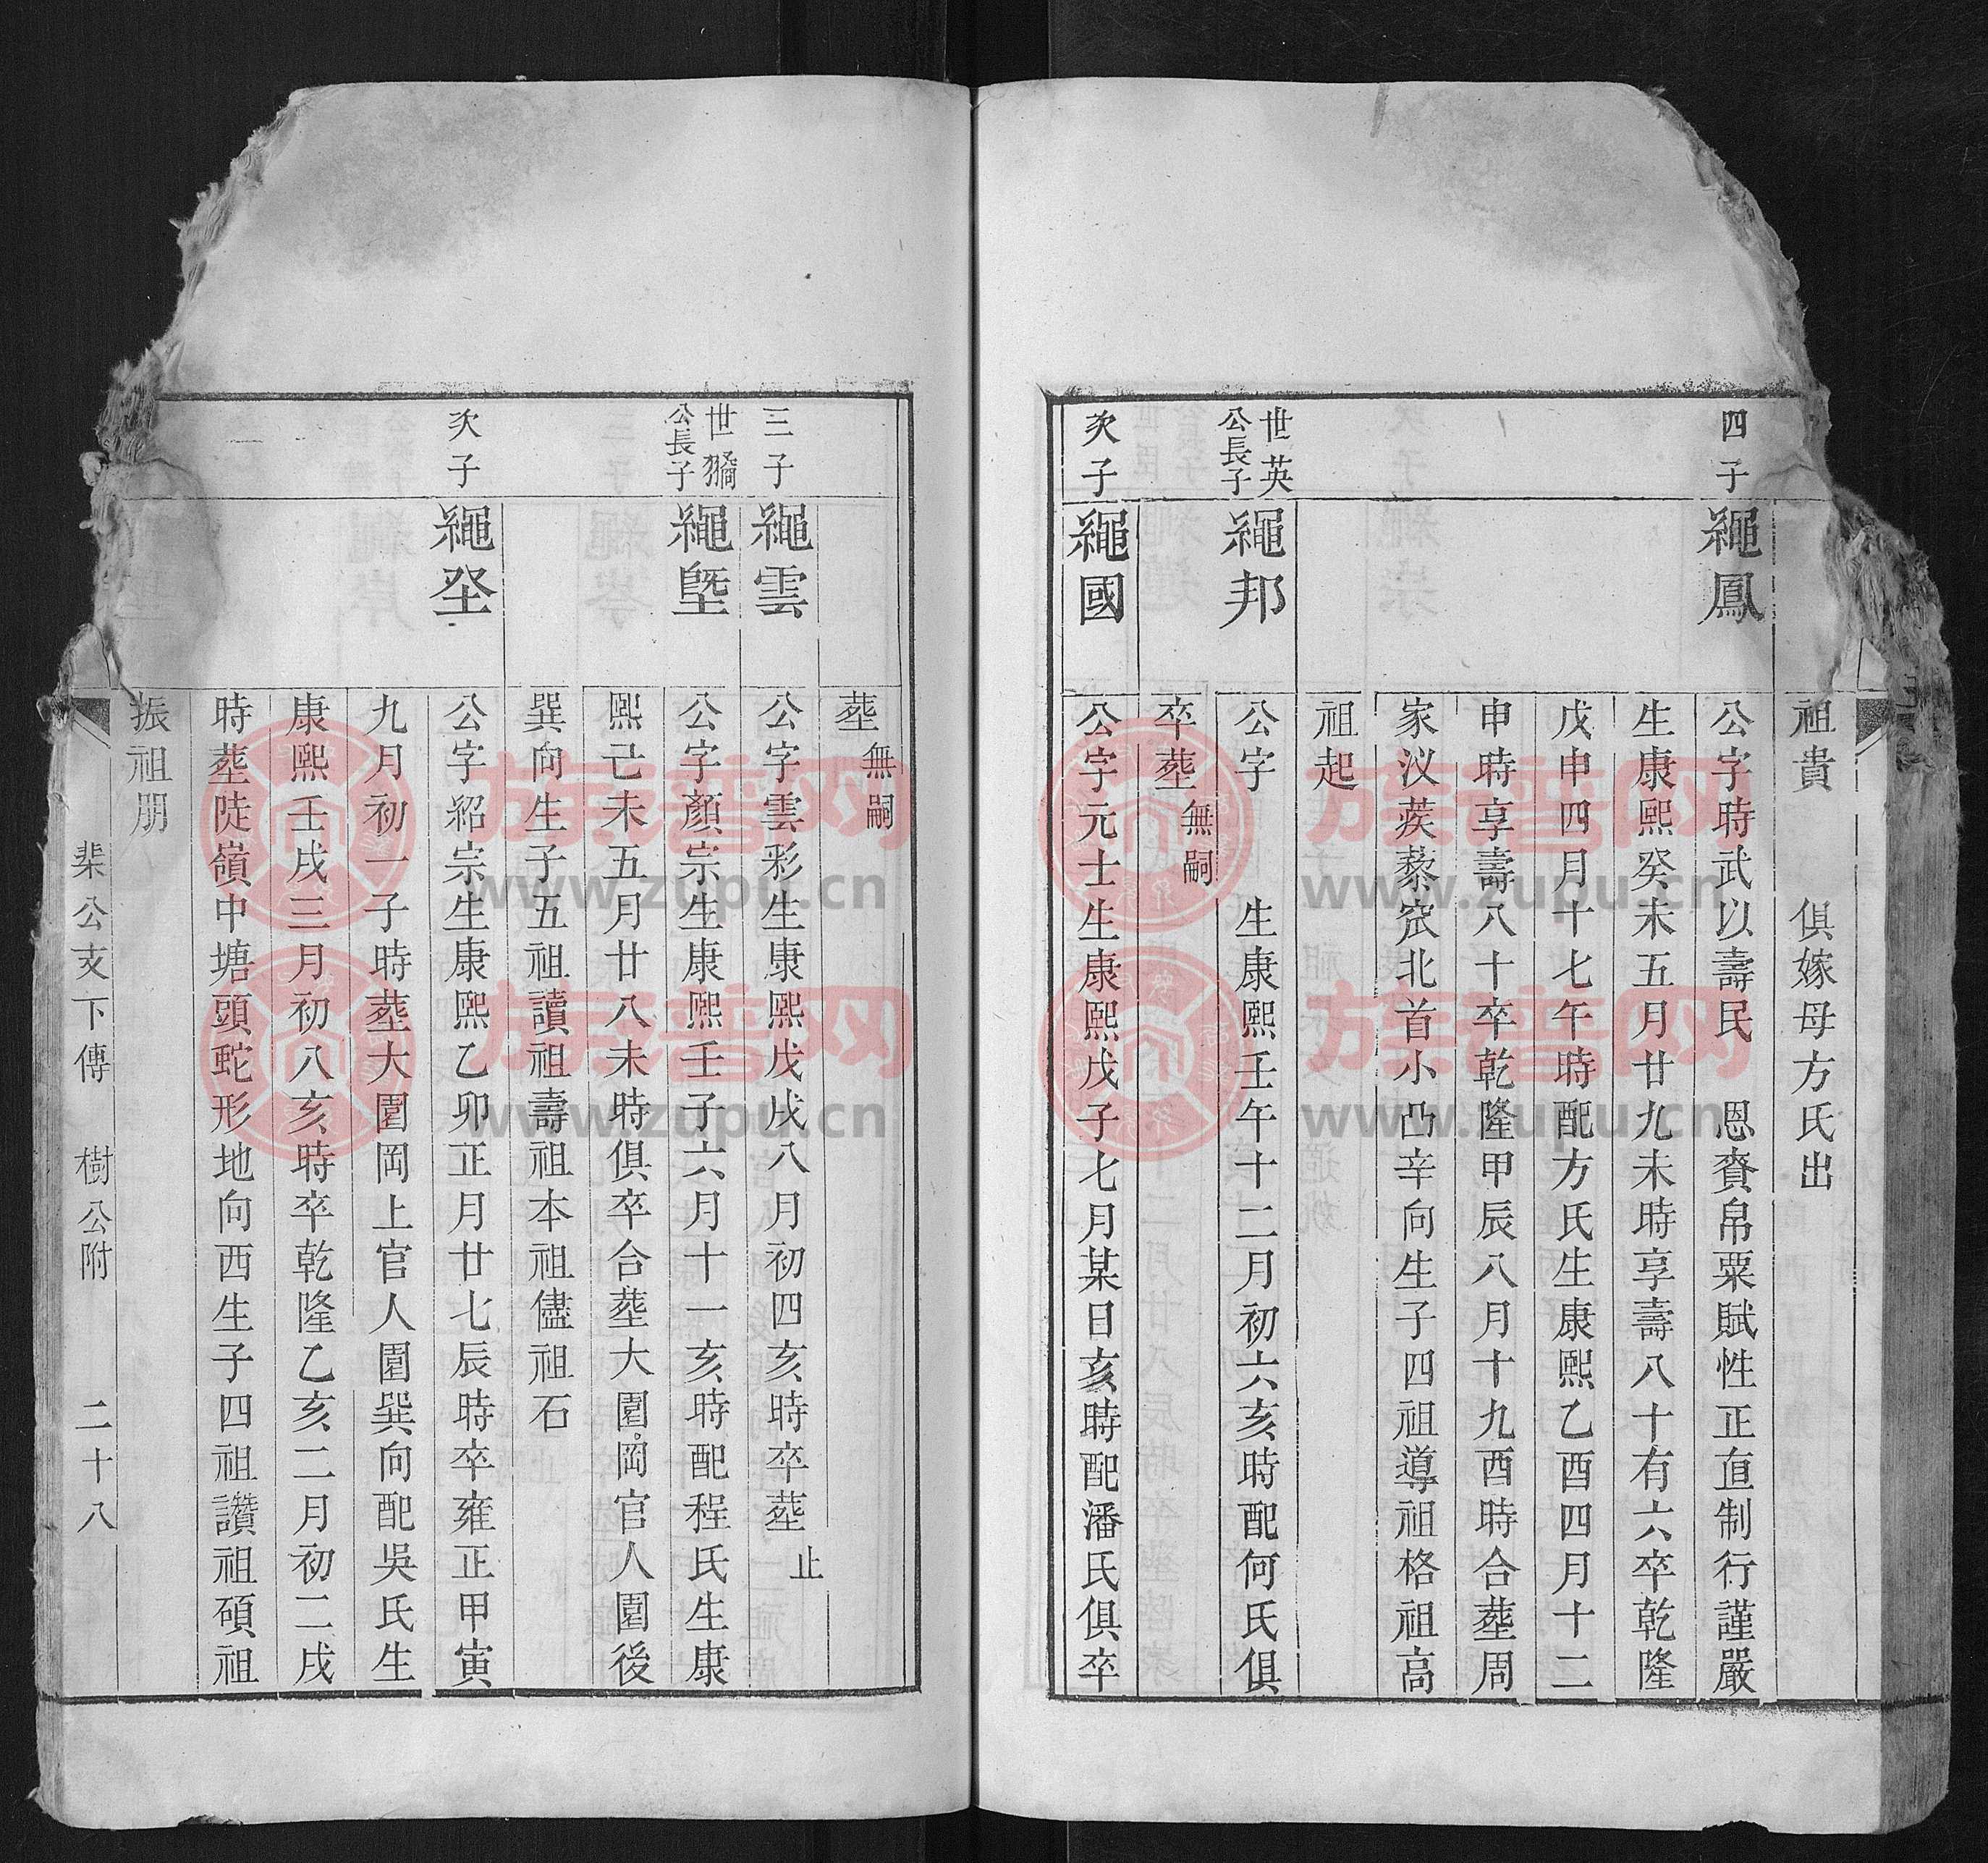 祖貴 俱嫁母方氏出
四子
繩鳳
公字時武以壽民 恩賚帛粟賦性正直制行謹嚴
生康熙癸未五月廿九未時享壽八十有六卒乾隆
戊申四月十七午時配方氏生康熙乙酉四月十二
申時享壽八十卒乾隆甲辰八月十九酉時合塟周
家汊蒺藜窊北首小凸辛向生子四祖導祖格祖高
祖起
世英
公長子
繩邦
公字 生康熙壬午十二月初六亥時配何氏俱
卒塟無嗣
次子
繩國
公字元士生康熙戊子七月某日亥時配潘氏俱卒
塟無嗣
三子
繩雲
公字雲彩生康熙戊戌八月初四亥時卒塟止
世
公長子
繩塈
公字顏宗生康熙壬子六月十一亥時配程氏生康
熙己未五月廿八未時俱卒合塟大園岡官人園後
巽向生子五祖讀祖壽祖本祖儘祖石
次子
繩坙
公字紹宗生康熙乙卯正月廿七辰時卒雍正甲寅
九月初一子時塟大園岡上官人園巽向配吳氏生
康熙壬戌三月初八亥時卒乾隆乙亥二月初二戌
時塟陡嶺中塘頭蛇形地向西生子四祖讚祖碩祖
振祖朋
棐公支下傳 樹公附 二十八
族譜网
www.zupu.cn
族譜网
www.zupu.cn
族譜网
www.zupu.cn
族譜网
www.zupu.cn